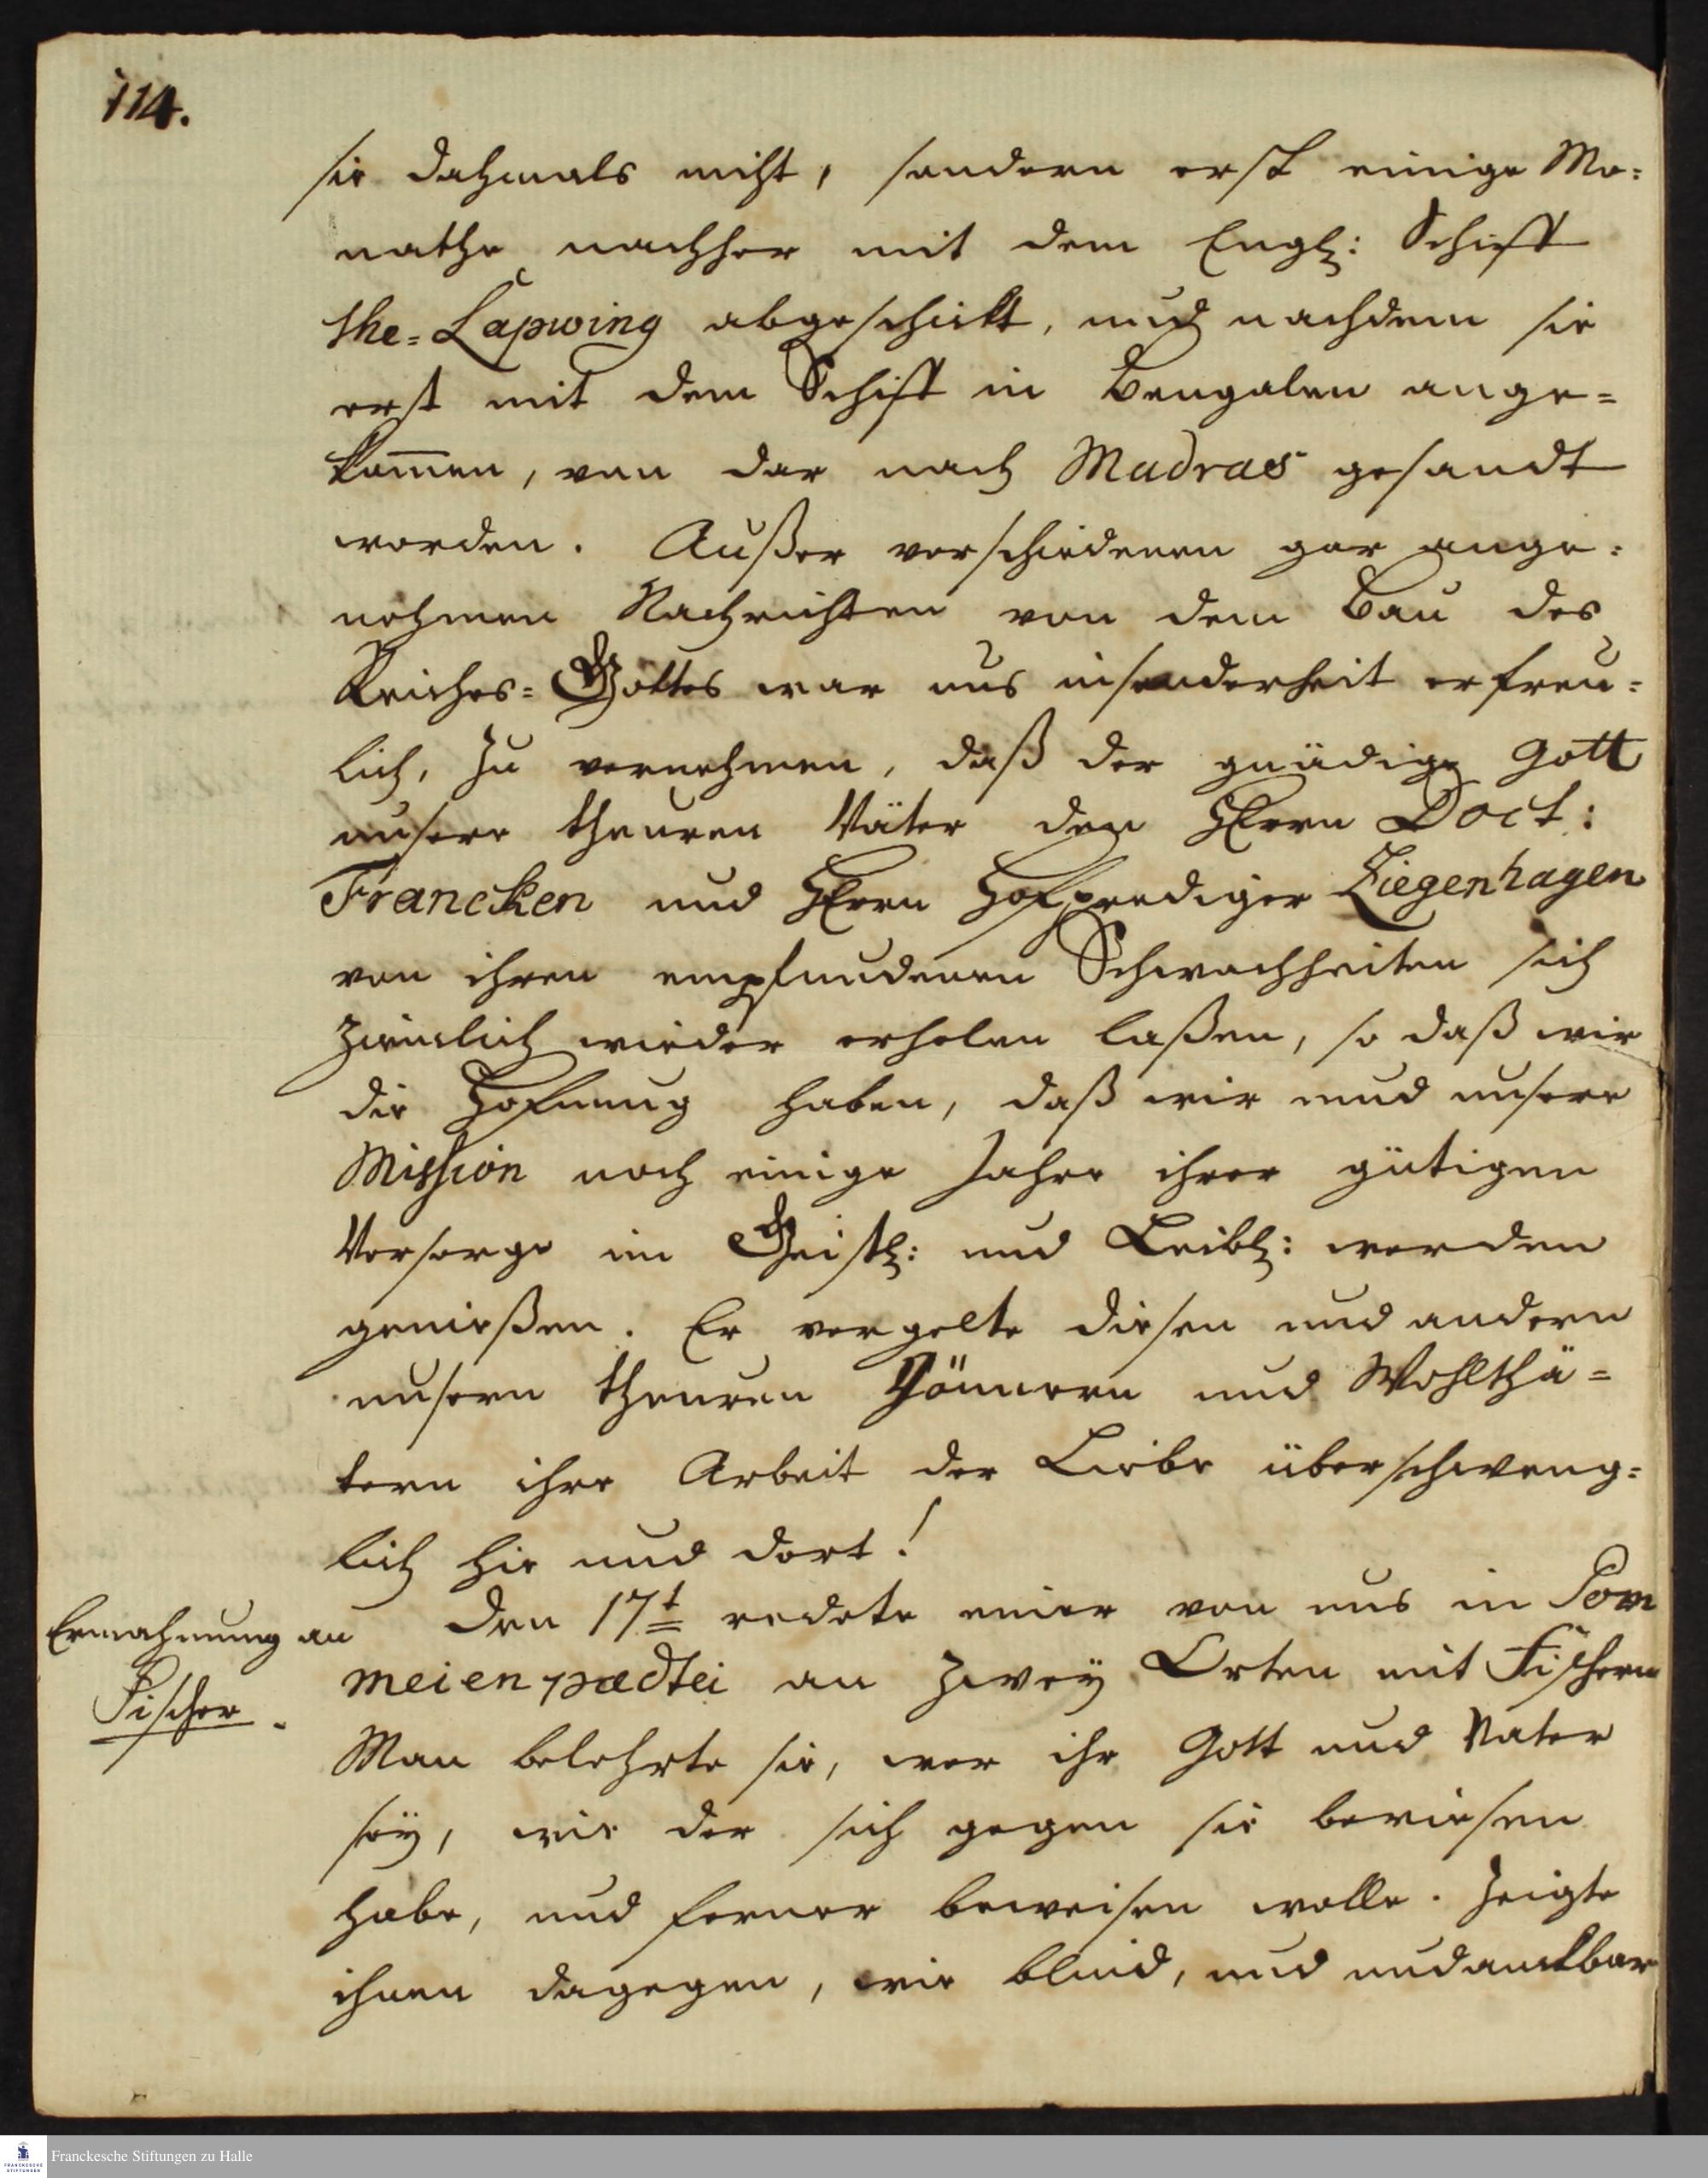 114.
sie dahmals nicht, sondern erst einige Mo=
nathe nachher mit dem Engl: Schiff
the=Lapwing abgeschickt, und nachdem sie
erst mit dem Schiff in Bengalen ange=
kom̅en, von dar nach Madras gesandt
worden. Außer verschiedenen gar ange=
nehmen Nachrichten von dem Bau des
Reiches=Gottes war uns insonderheit erfreu=
lich, zu vernehmen, daß der gnädige Gott
unsere theuren Väter den HErrn Doct:
Francken und HErrn Hofprediger Ziegenhagen
von ihren empfundenen Schwachheiten sich
zieml­ich wieder erholen laßen, so daß wir
die Hofnung haben, daß wir und unsere
Mission noch einige Jahre ihrer gütigen
Vorsorge im Geistl: und Leibl: werden
genießen. Er vergelte diesen und andern
unsern theuren Gönnern und Wohlthä=
tern ihre Arbeit der Liebe überschweng=
lich hie und dort!
Ermahnung an
Fischer.
Den 17t redete einer von uns in Pom
meienpædtei an zwey Orten mit Fischern
Man belehrte sie, wer ihr Gott und Vater
sey, wie der sich gegen sie bewiesen
habe, und ferner beweisen wolle. Zeigte
ihnen dagegen, wie blind, und undanckbar
Franckesche Stiftungen zu Halle
FRANCKESCHE
STIFTUNGEN